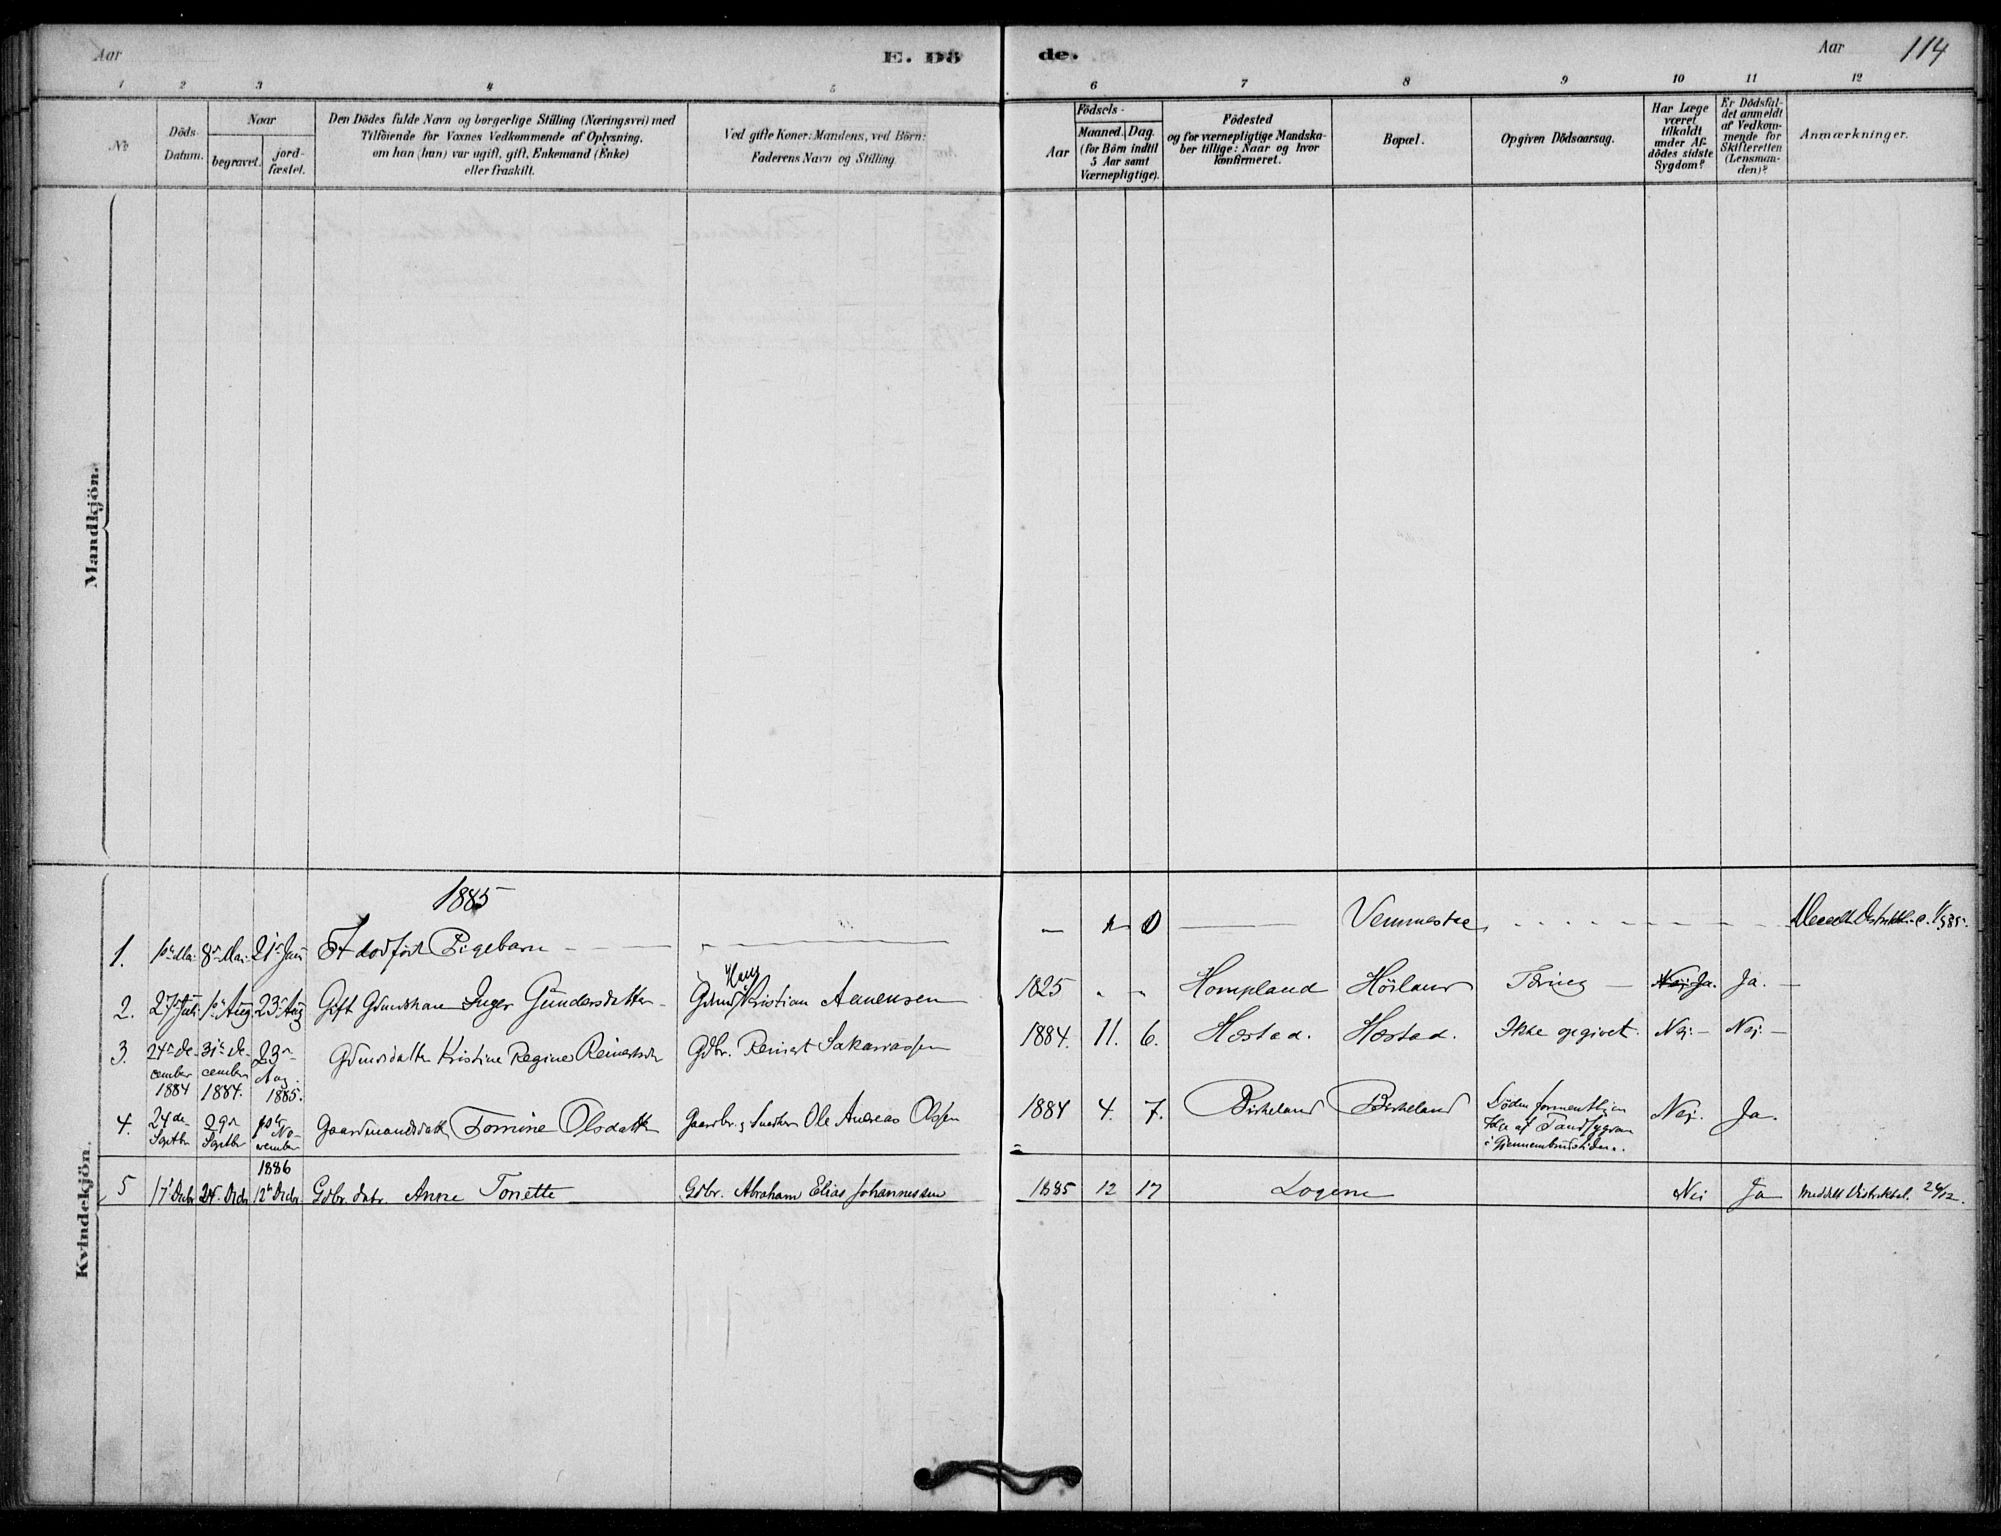 Aar
E. Dö
de.
Aar
114
1 2 3 4 5 6 7 8 9 10 11 12
No
Döds
Datum.
Naar
begravet.
jord-
fæstet.
Den Dödes fulde Navn og borgerlige Stilling (Næringsvei) med
Tilföiende for Voxnes Vedkommende af Oplysning,
om han (hun) var ugift, gift, Enkemand (Enke)
eller fraskilt.
Ved gifte Koner: Mandens, ved Börn:
Faderens Navn og Stilling
Födsels-
Aar
Maaned. Dag.
(for Börn indtil
5 Aar samt
Værnepligtige).
Födested
og for værnepligtige Mandska-
ber tillige: Naar og hvor
konfirmeret.
Bopæl.
Opgiven Dödsaarsag.
Har Læge
været
tilkaldt
under Af-
dödes sidste
Sygdom?
Er Dödsfal-
det anmeldt
af Vedkom-
mende for
Skifteretten
(Lensman-
den)?
Anmærkninger.
Mandkjön.
Kvindekjön.
1885
1. 8de Mai 21 Et dødfødt Pigebarn
2. 27 Juli 1ste Aug 23 Aug Gift Inger Gundersdatter Hans Kristian Aanensen 1825 " " Hompland Høiland Tæring Nej Ja. Ja.
3. 24de De-
cember
1884
31te De-
cember
1884.
23
Aug.
1885.
Kristine Regine Reinertsd Gdbr. Reinert Sakariassen 1884. 11. 6. Hæstad. Hæstad. Ikke opgivet. Nej Nej
4. 24de
Septbr
29
Septbr
No-
vember
Gaardmandsdatt Tomine Olsdatter Gaardbr. Ole Andreas Olsen 1884 4. 7. Birkeland Birkeland Døden formentligen
Følge af Tandsygdom
i Gjennembrudstiden. Nej. Ja.
1886
5 17 Decbr 24 Decbr 12 Decbr Gdbr. datr. Anne Tonette Gdbr. Abraham Elias Johannessen 1885 12 17 Logene Nei Ja Meddelt Distriktsl. 24/12.